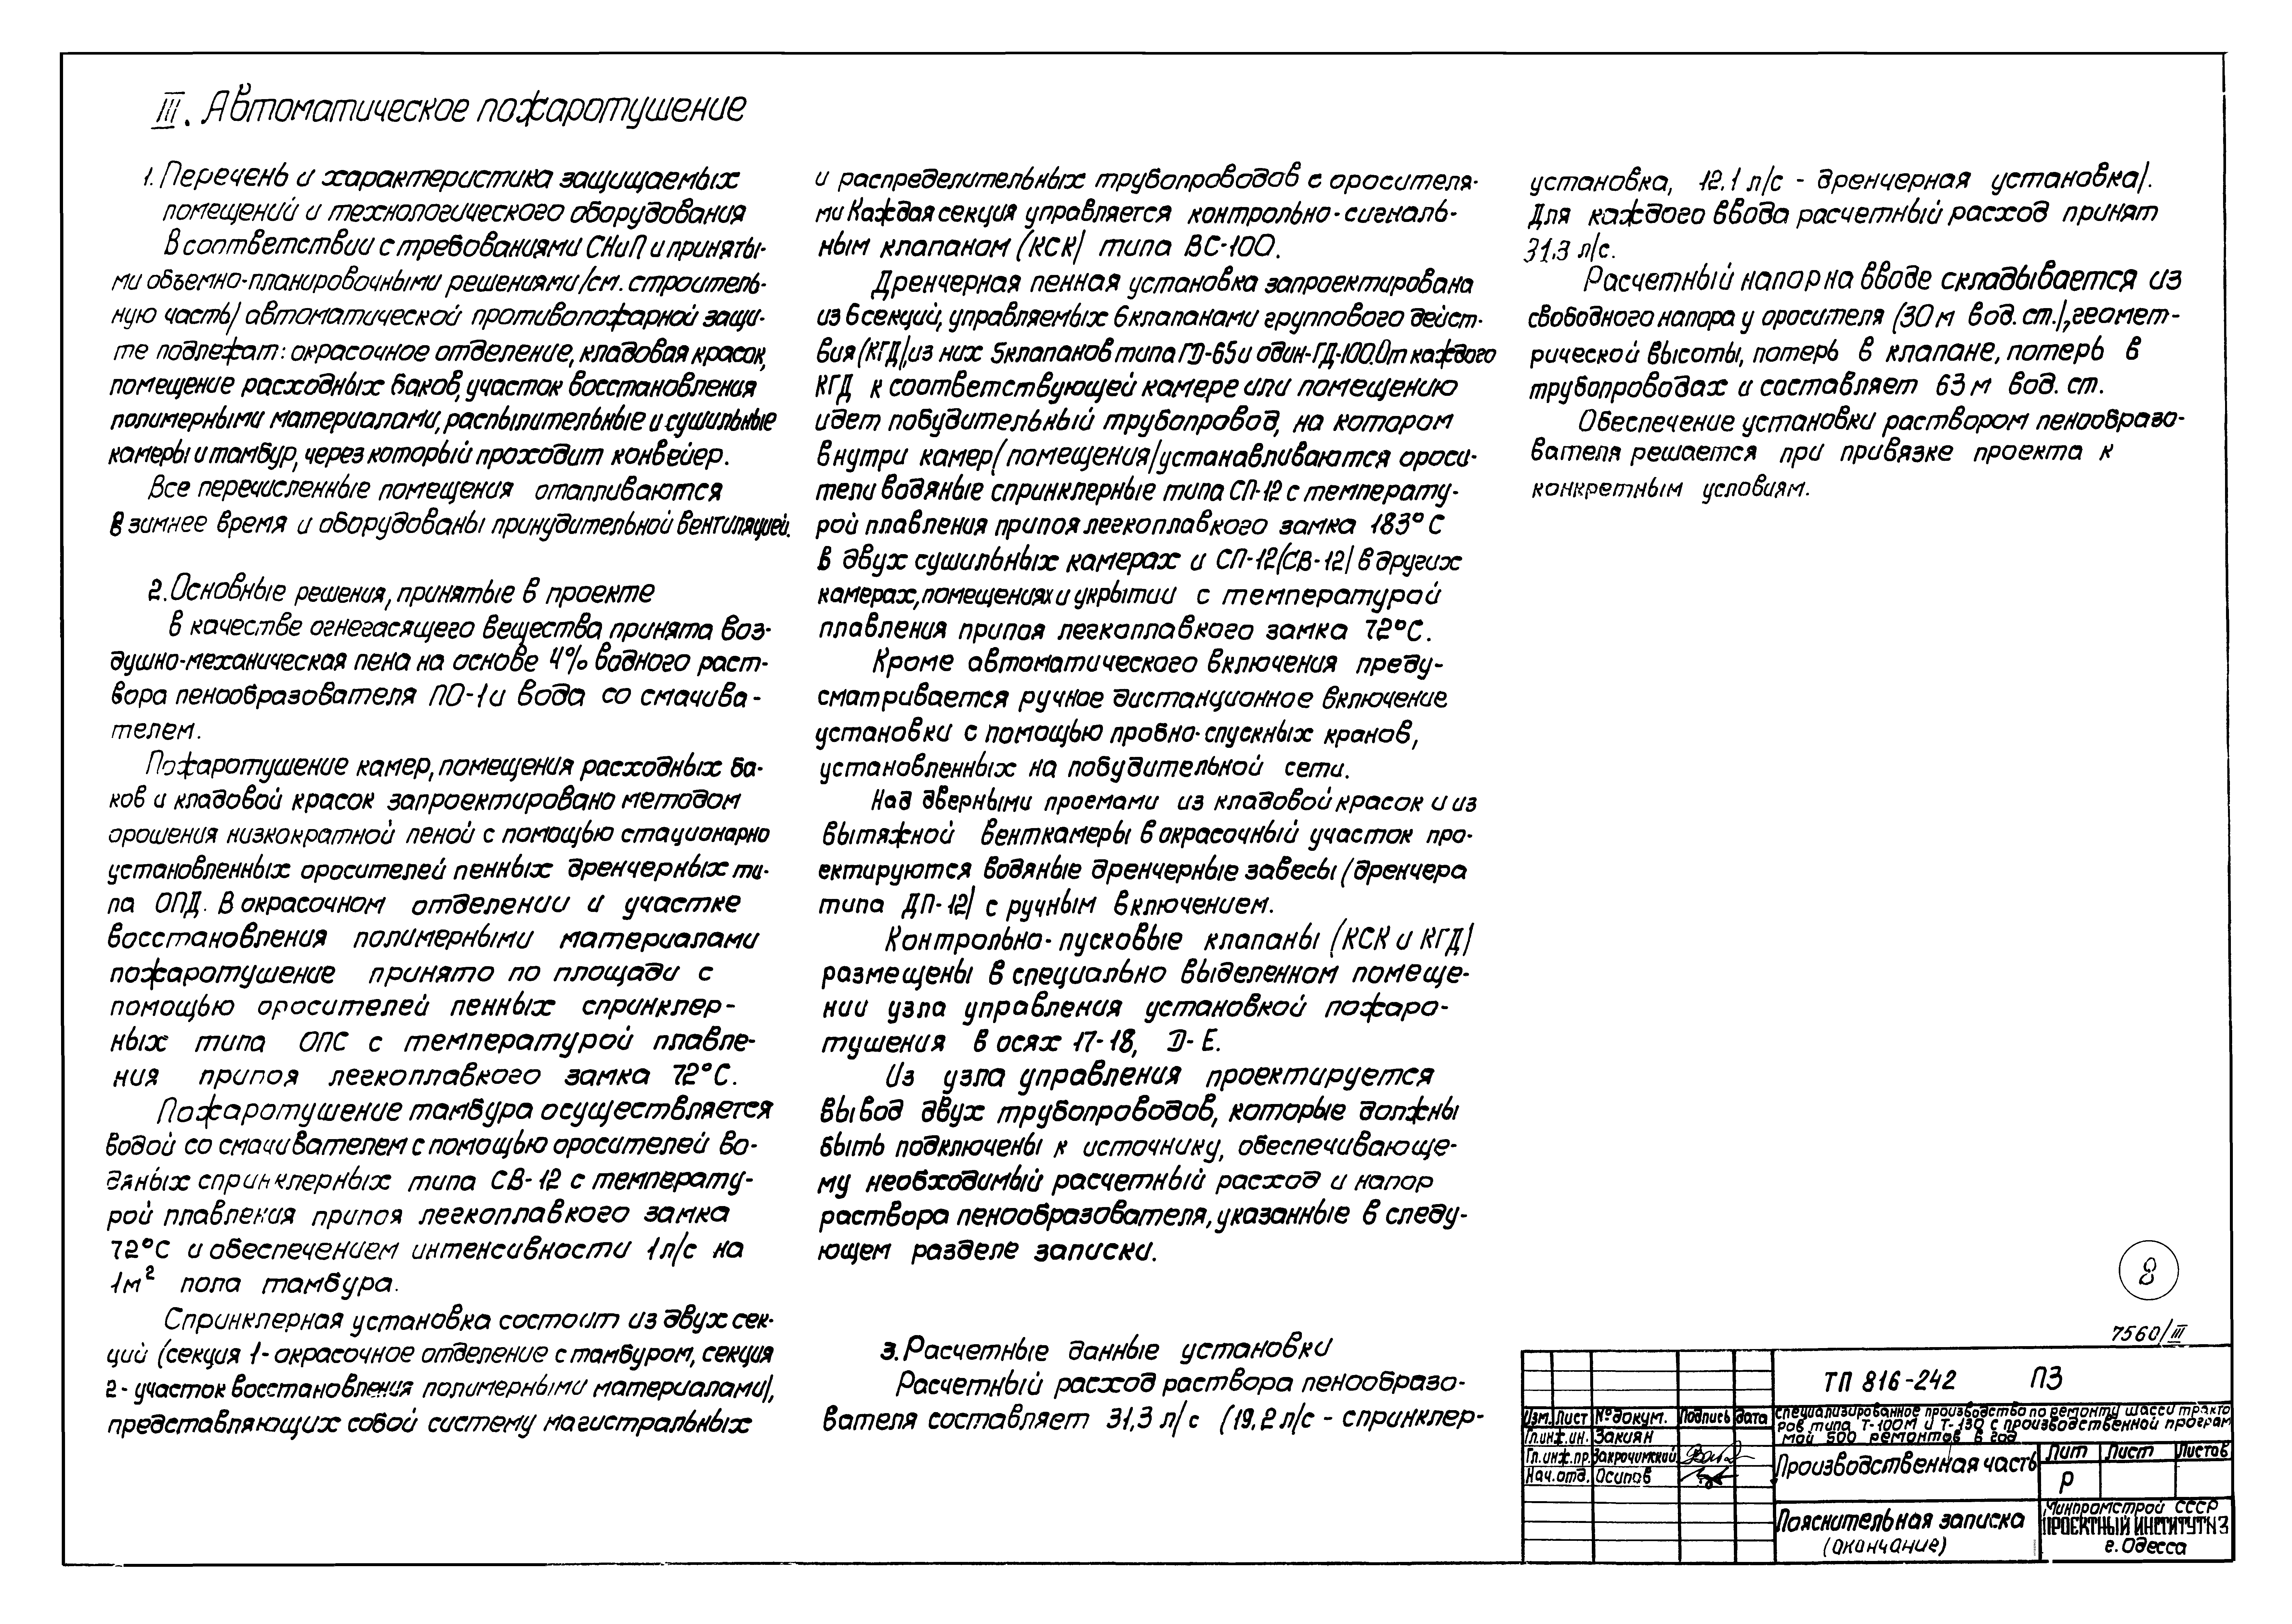 III. Автоматическое пожаротушение
1. Перечень и характеристика защищаемых
помещений и технологического оборудования
В соответствии с требованиями СНиП и приняты-
ми объемно-планировочными решениями /см. строитель-
ную часть/ автоматической противопожарной защи-
те подлежат: окрасочное отделение, кладовая красок,
помещение расходных баков, участок восстановления
полимерными материалами, распылительные и сушильные
камеры и тамбур, через который проходит конвейер.
Все перечисленные помещения отапливаются
в зимнее время и оборудованы принудительной вентиляцией.
2. Основные решения, принятые в проекте
в качестве огнегасящего вещества принята воз-
душно-механическая пена на основе 4% водного раст-
вора пенообразователя ПО-1 и вода со смачива-
телем.
Пожаротушение камер, помещения расходных ба-
ков и кладовой красок запроектировано методом
орошения низкократной пеной с помощью стационарно
установленных оросителей пенных дренчерных ти-
па ОПД. В окрасочном отделении и участке
восстановления полимерными материалами
пожаротушение принято по площади с
помощью оросителей пенных спринклер-
ных типа ОПС с температурой плавле-
ния припоя легкоплавкого замка 72°С.
Пожаротушение тамбура осуществляется
водой со смачивателем с помощью оросителей во-
дяных спринклерных типа СВ-12 с температу-
рой плавления припоя легкоплавкого замка
72°С и обеспечением интенсивности 1 л/с на
1м² пола тамбура.
Спринклерная установка состоит из двух сек-
ций (секция 1- окрасочное отделение с тамбуром, секция
2- участок восстановления полимерными материалами/,
представляющих собой систему магистральных
и распределительных трубопроводов с оросителя-
ми Каждая секция управляется контрольно-сигналь-
ным клапаном (КСК/ типа ВС-100.
Дренчерная пенная установка запроектирована
из 6 секций, управляемых 6 клапанами группового дейст-
вия (КГД/, из них 5 клапанов типа ГД-65 и один-ГД-100. От каждого
КГД к соответствующей камере или помещению
идет побудительный трубопровод, на котором
внутри камер (помещения/ устанавливаются ороси-
тели водяные спринклерные типа СП-12 с температу-
рой плавления припоя легкоплавкого замка 183°С
в двух сушильных камерах и СП-12 (СВ-12/ в других
камерах, помещениях и укрытии с температурой
плавления припоя легкоплавкого замка 72°С.
Кроме автоматического включения преду-
сматривается ручное дистанционное включение
установки с помощью пробно-спускных кранов,
установленных на побудительной сети.
Над дверными проемами из кладовой красок и из
вытяжной венткамеры в окрасочный участок про-
ектируются водяные дренчерные завесы (дренчера
типа ДП-12/ с ручным включением.
Контрольно-пусковые клапаны (КСК и КГД/
размещены в специально выделенном помеще-
нии узла управления установкой пожаро-
тушения в осях 17-18, D-E.
Из узла управления проектируется
вывод двух трубопроводов, которые должны
быть подключены к источнику, обеспечивающе-
му необходимый расчетный расход и напор
раствора пенообразователя, указанные в следу-
ющем разделе записки.
3. Расчетные данные установки
Расчетный расход раствора пенообразо-
вателя составляет 31,3 л/с (19,2 л/с - спринклер-
установка, 12.1 л/с - дренчерная установка/.
Для каждого ввода расчетный расход принят
31.3 л/с.
Расчетный напор на вводе складывается из
свободного напора у оросителя (30 м вод. ст./, геомет-
рической высоты, потерь в клапане, потерь в
трубопроводах и составляет 63 м вод. ст.
Обеспечение установки раствором пенообразо-
вателя решается при привязке проекта к
конкретным условиям.
8
7560/III
ТП 816-242 ПЗ
Изм. Лист №докум. Подпись Дата
Специализированное производство по ремонту шасси тракто
ров типа Т-100М и Т-130 с производственной програм
мой 500 ремонтов в год
Гл.инж.ин. Закиян
Гл.инж.пр. Закрочимский
Нач.отд. Осипов
Производственная часть
Лит Лист Листов
Р
Пояснительная записка
(окончание)
Минпромстрой СССР
ПРОЕКТНЫЙ ИНСТИТУТ №3
г. Одесса